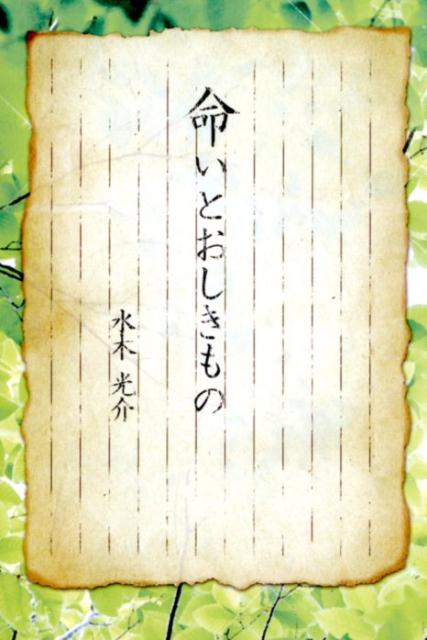 命いとおしきもの
水木 光介